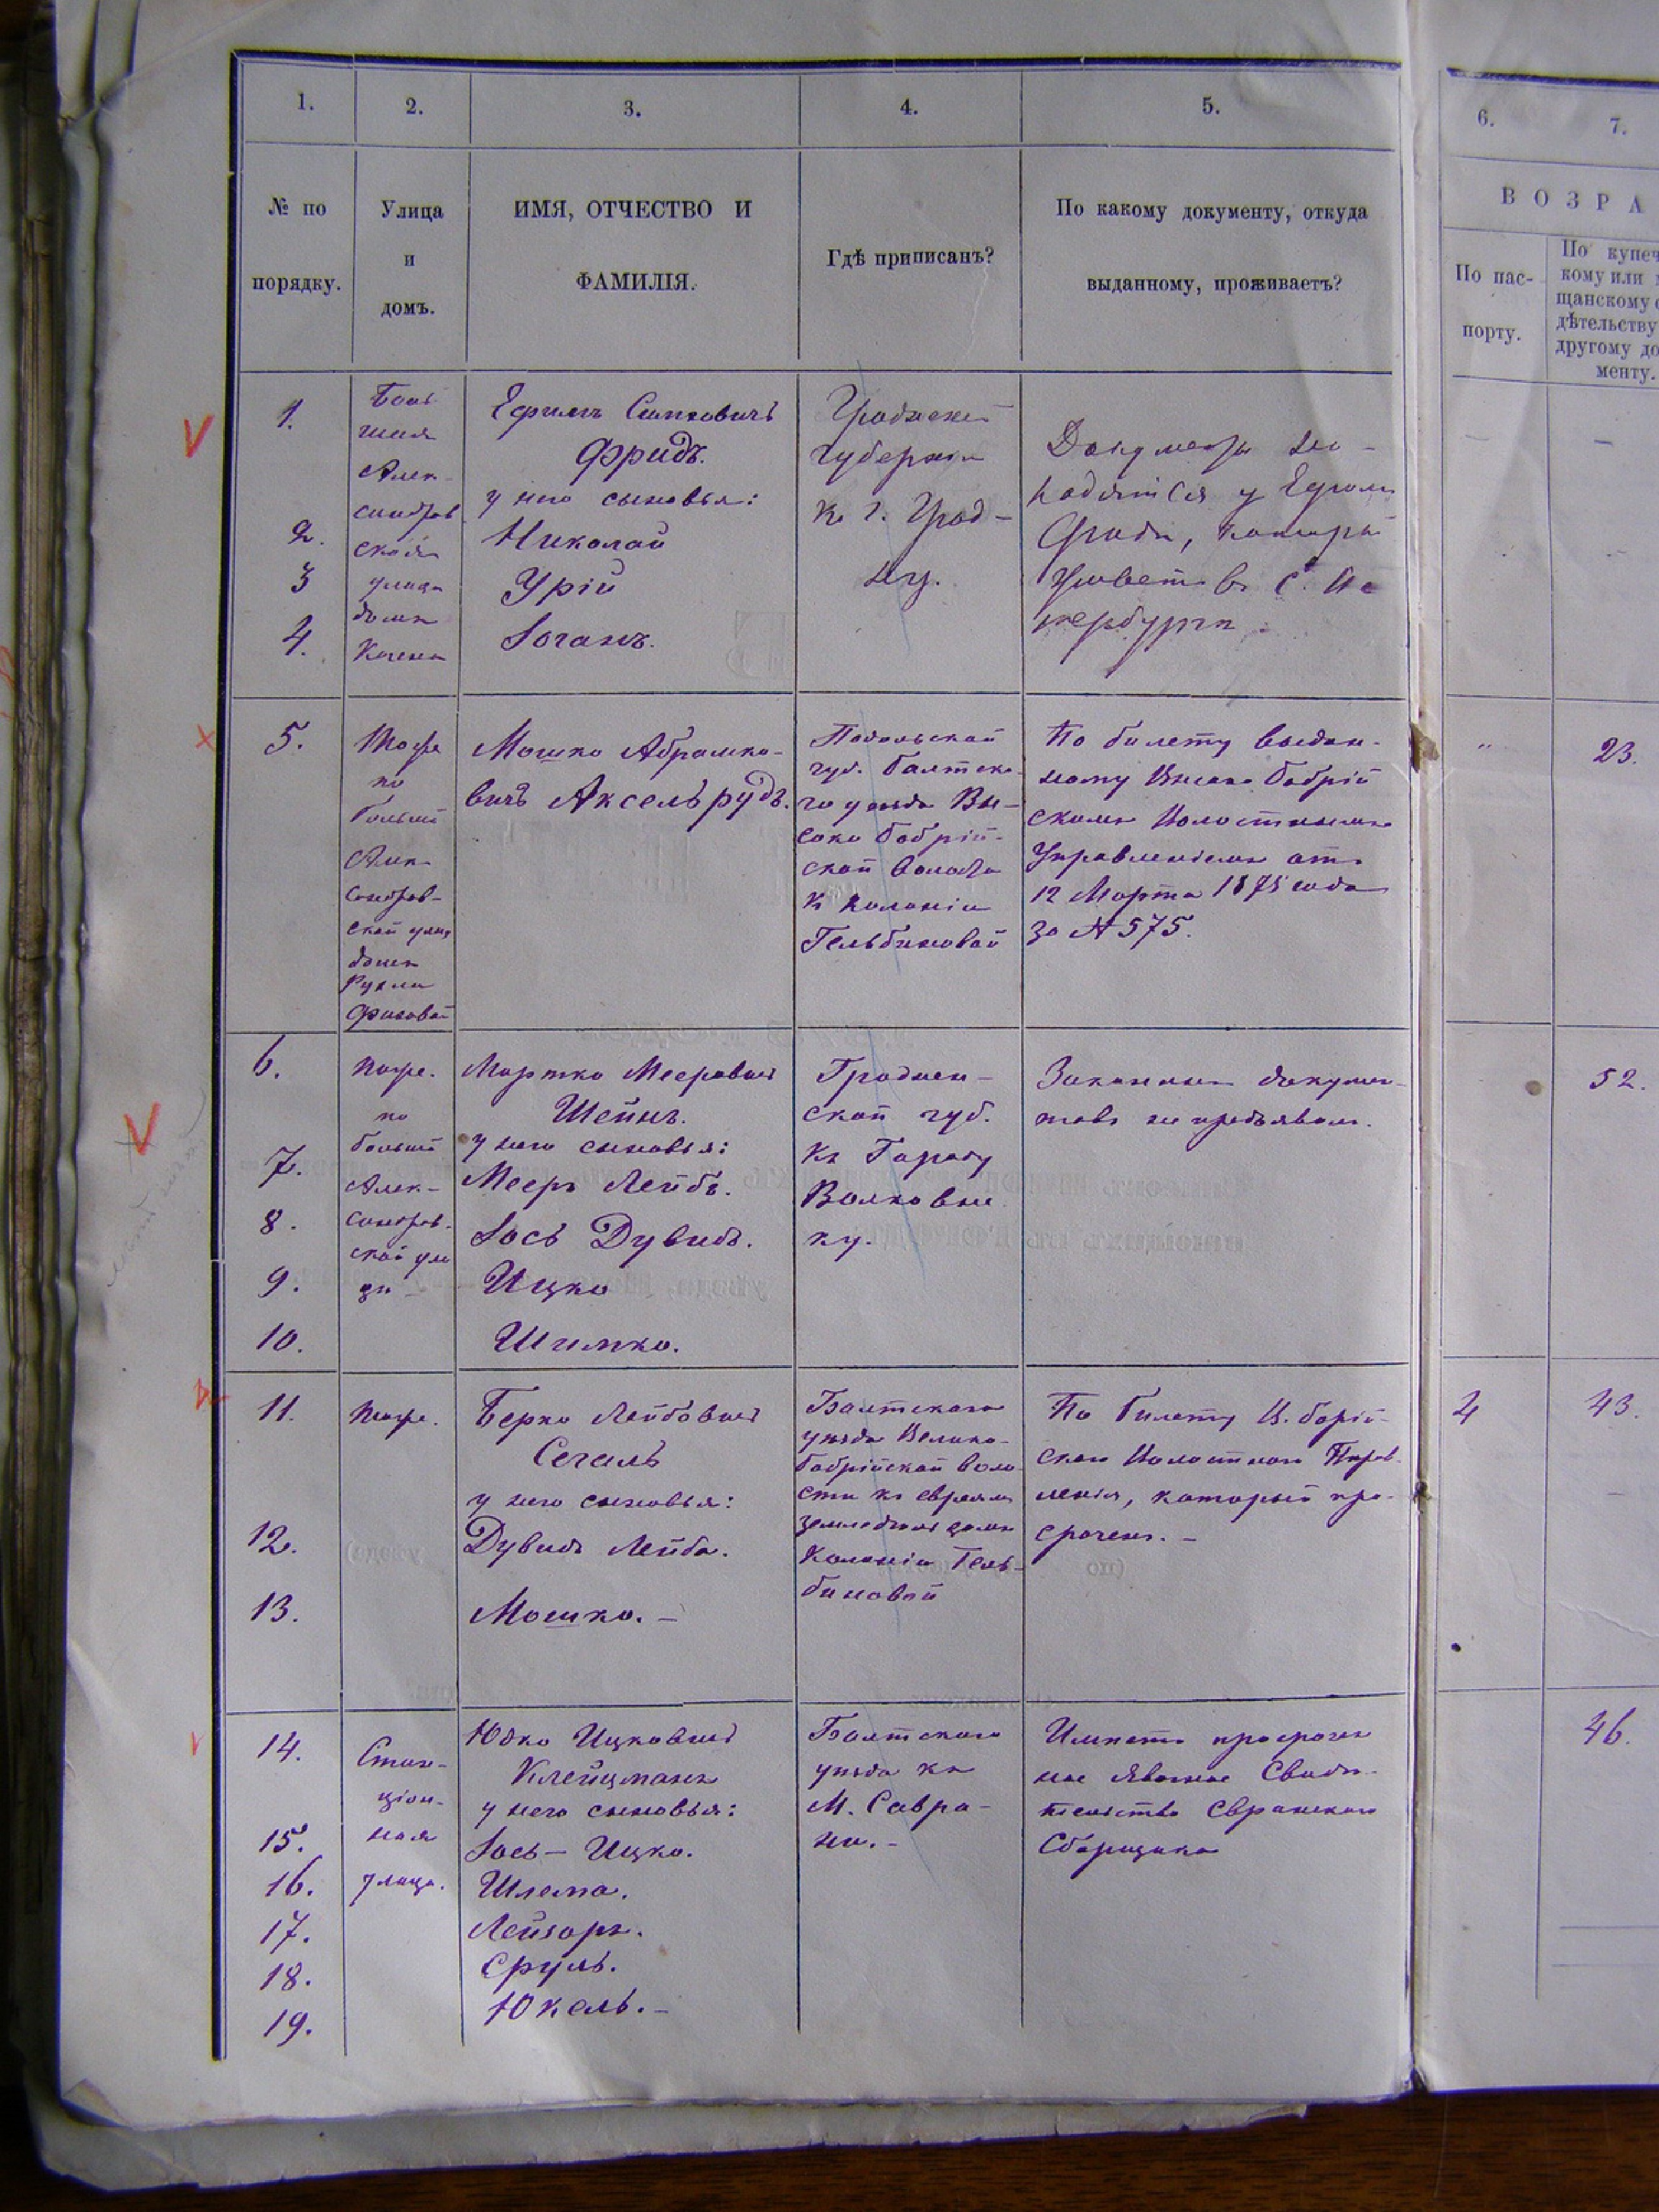 1.
2.
3.
4.
5.
6.
7.
№ по
порядку.
Улица
и
домъ.
ИМЯ, ОТЧЕСТВО И
ФАМИЛІЯ.
Гдѣ приписанъ?
По какому документу, откуда
выданному, проживаетъ?
В О З Р А
По пас-
порту.
По купеч
кому или
щанскому
дѣтельству
другому до
менту.
1.
Боль
шая
Алек-
сандров
ская
улица
домъ
2.
3
4.
Ефимъ
Фридъ.
у него сыновья:
Николай
Урій
Іоганъ.
Гродненской
губерніи
къ г. Грод-
ну.
Документы на-
ходятся у Ефима
Фрида, который
живетъ въ С. Пе
тербургѣ.
5.
Тоже
по
большой
Алек
сандров-
ской улиц
домъ
Рухли
Мошко Абрамко-
вичъ Аксельрудъ.
Подольской
губ. Балтска-
го уѣзда Вы-
соко Бобрій-
ской волости
къ колоніи
Гельбиновой
По билету выдан-
ному Бобрій
скимъ Волостнымъ
Управленіемъ отъ
12 Марта 1875 года
за № 575.
"
23.
6.
тоже.
по
большой
Алек-
сандров-
ской ули
цѣ
7.
8.
9.
10.
Мортко Мееровичъ
Шейнъ.
у него сыновья:
Мееръ Лейбъ.
Іось Дувидъ.
Ицко
Шимко.
Гроднен-
ской губ.
къ Городу
Волковы
ку.
Законныхъ докумен-
товъ не предъявилъ.
52.
11.
тоже.
12.
13.
Берко Лейбовичъ
Сегаль
у него сыновья:
Дувидъ Лейба.
Мошко. –
Балтскаго
уѣзда Велико-
бобрійской воло-
сти къ евреямъ
земледѣльцамъ
Колоніи Гель-
биновой
По билету В. борій-
скаго Волостнаго Прав-
ленія, который про-
сроченъ. –
4
43.
14.
Стан-
ціон-
ная
улица.
15.
16.
17.
18.
19.
Юдко Ицковичъ
Клейцманъ
у него сыновья:
Іось – Ицко.
Шлема.
Лейзоръ.
Сруль.
Юкель. –
Балтскаго
уѣзда къ
М. Савра-
ни. –
Имѣетъ просрочен
ное явочное Свидѣ-
тельство Савранскаго
Сборщика
46.